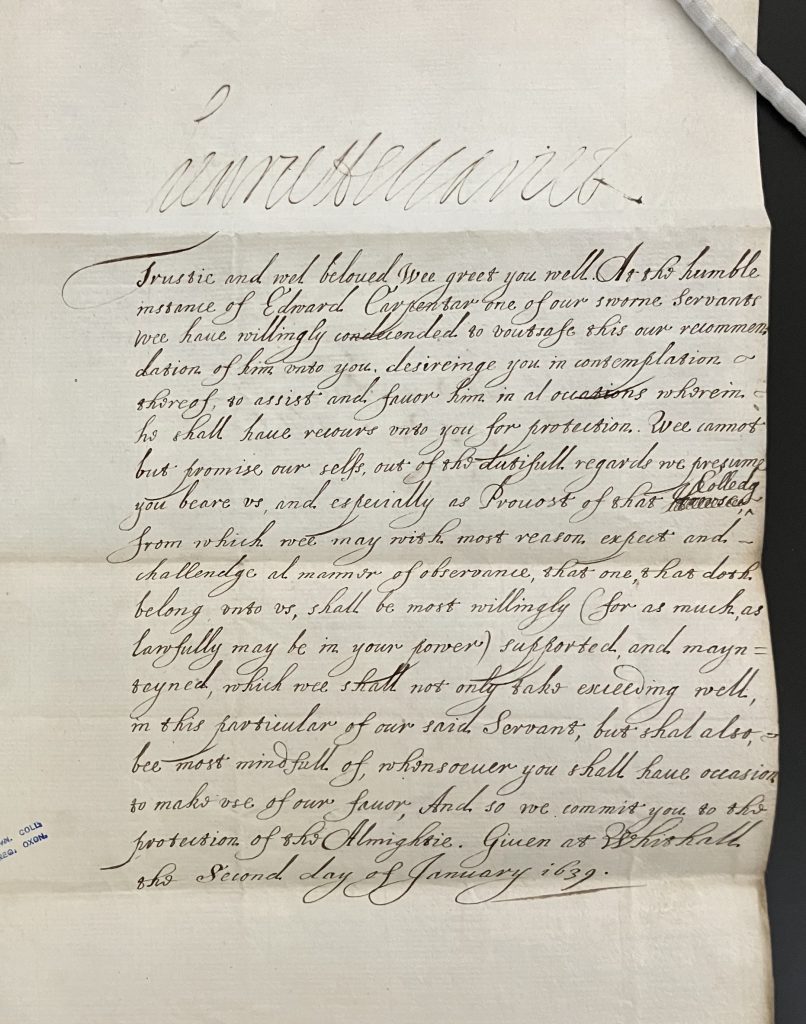 Henriette Marie R
Trustie and wel beloved Wee greet you well. At the humble
instance of Edward Carpentar one of our sworne Servants
Wee have willingly condecended to voutsafe this our recommen
dation of him vnto you. desireinge you in contemplation
thereof, to assist and favor him in al occations wherein
he shall have recours vnto you for protection. Wee cannot
but promise our selfs, out of the dutifull regards we presume
you beare vs, and especially as Provost of that Colledg
from which wee may with most reason expect and
challendge al manner of observance, that one, that doth
belong vnto vs, shall be most willingly (for as much, as
lawfully may be in your power) supported, and mayn=
teyned, which wee shall not only take exceeding well,
in this particular of our said Servant, but shal also,
bee most mindfull of, whensoever you shall have occasion
to make vse of our favor, And so we commit you to the
protection of the Almightie. Given at Whithall
the Second day of January 1639.
COLL:
REG: OXON.